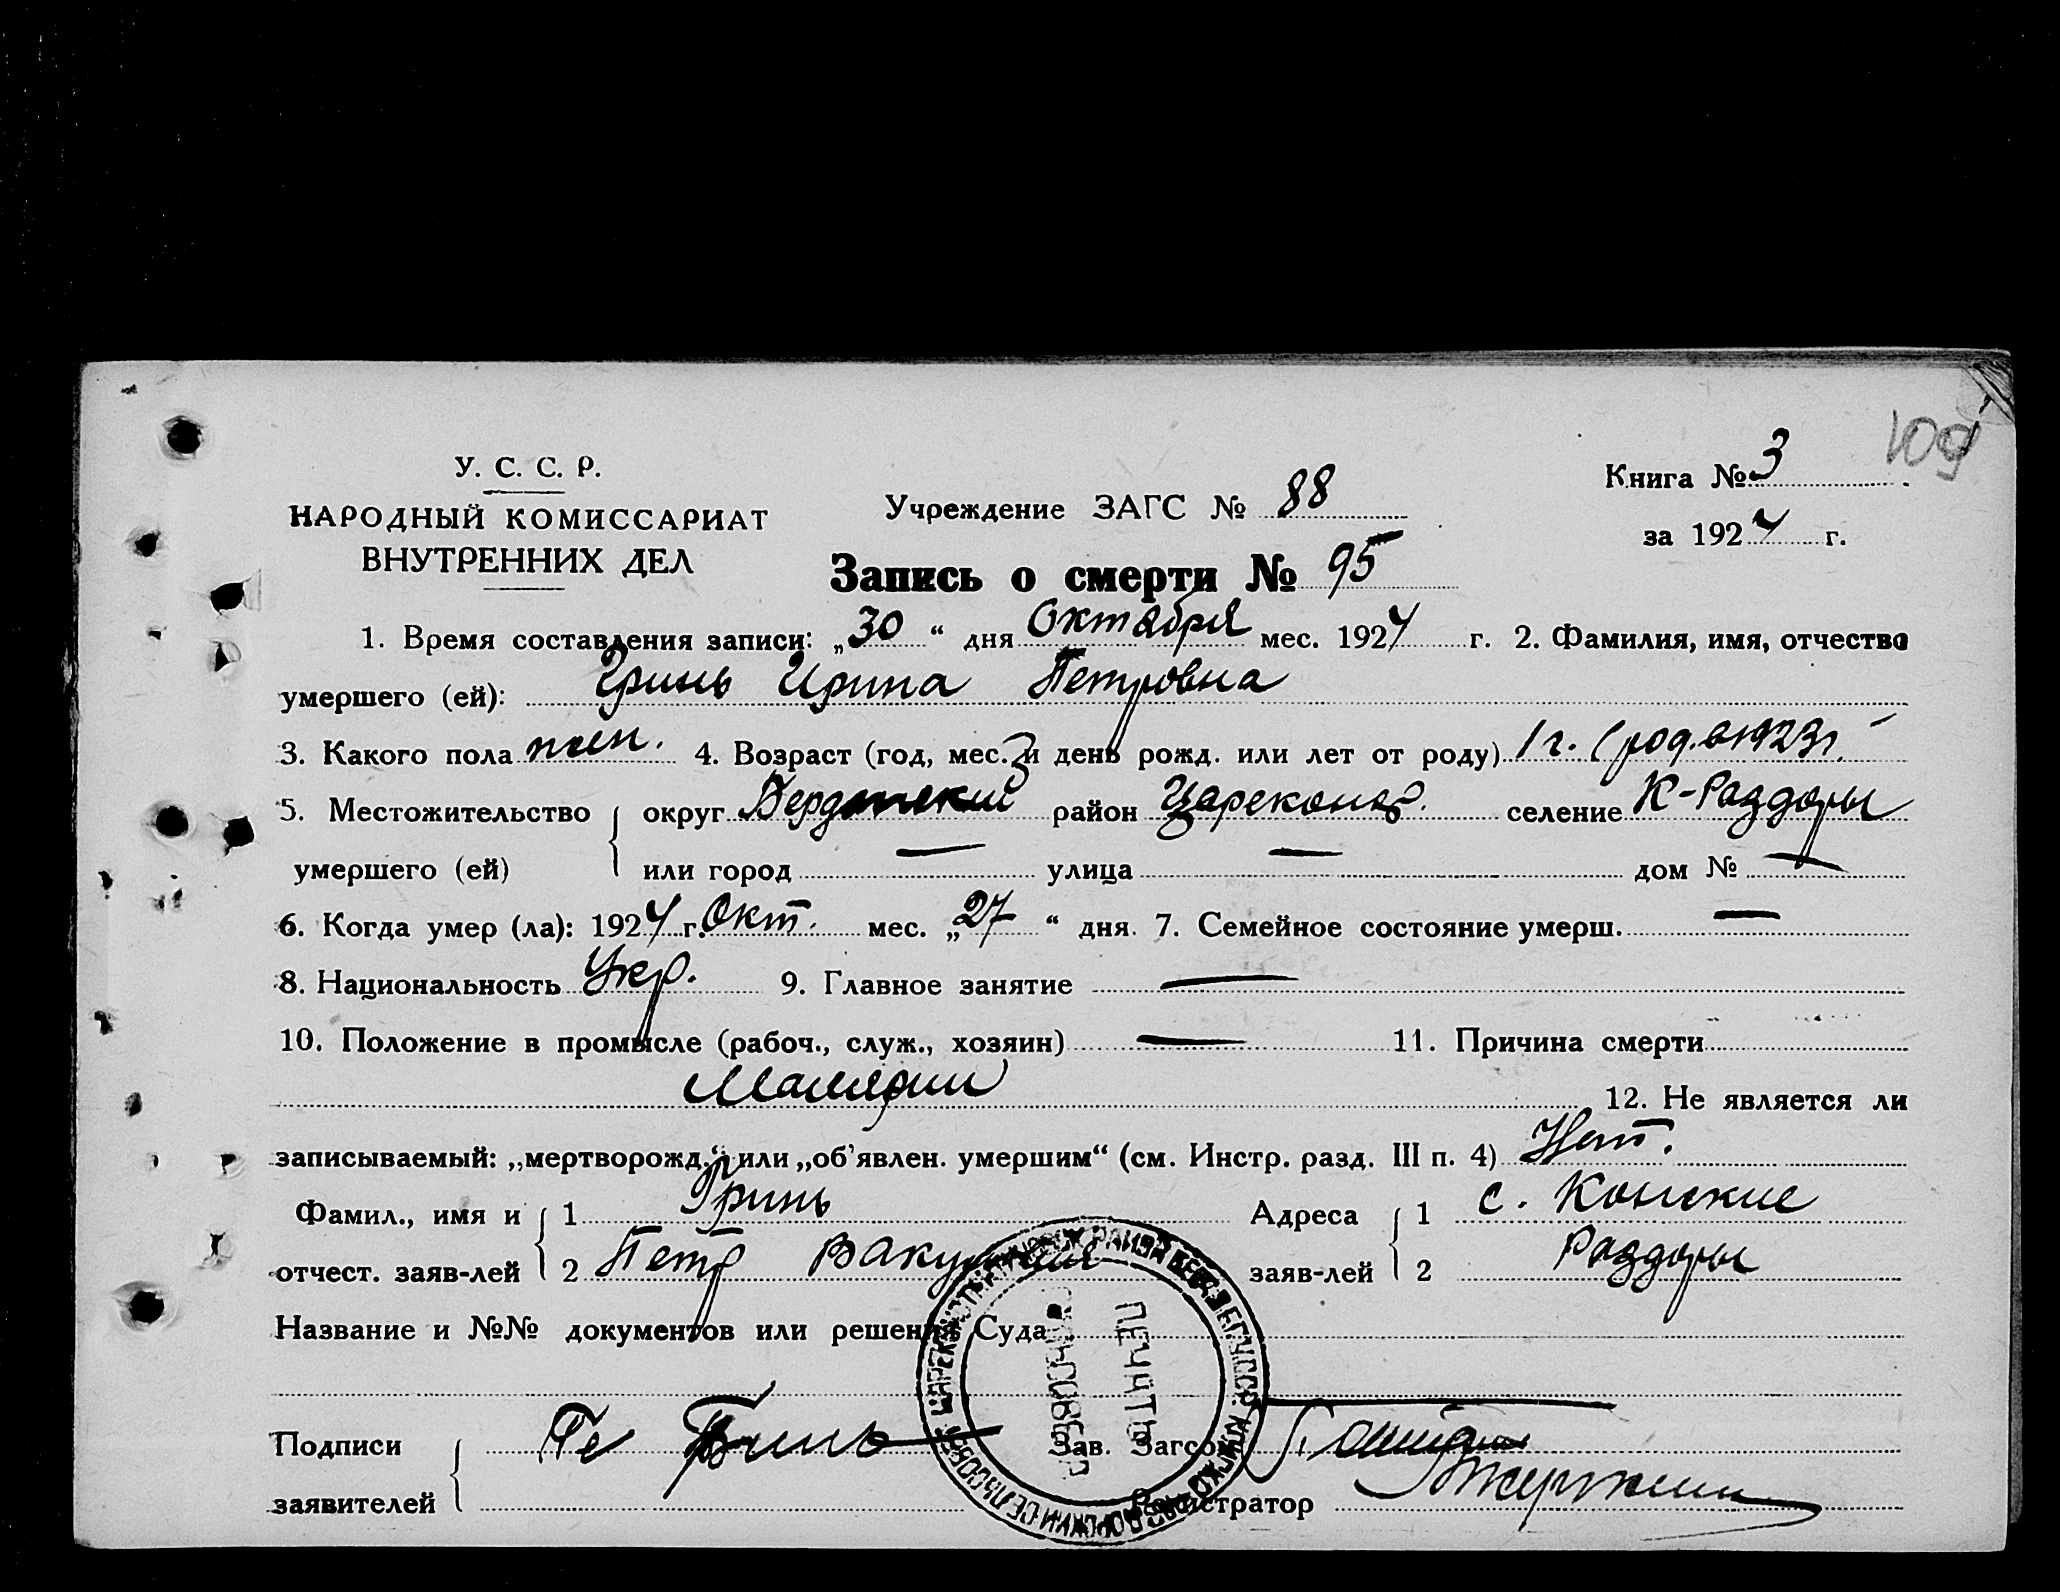 109
У. С. С. Р.
НАРОДНЫЙ КОМИССАРИАТ
ВНУТРЕННИХ ДЕЛ
Учреждение ЗАГС № 88
Книга № 3
за 1924 г.
Запись о смерти № 95
1. Время составления записи: „30“ дня Октября мес. 1924 г. 2. Фамилия, имя, отчество
умершего (ей): Гринь Ирина Петровна
3. Какого пола жен. 4. Возраст (год, мес. и день рожд. или лет от роду) 1 г. (род. в 1923 г.
5. Местожительство округ Бердянский район Цареконст. селение К-Раздоры
умершего (ей) или город — улица — дом № —
6. Когда умер (ла): 1924 г. Окт. мес. „27“ дня. 7. Семейное состояние умерш. —
8. Национальность Укр. 9. Главное занятие —
10. Положение в промысле (рабоч., служ., хозяин) — 11. Причина смерти
Малярии 12. Не является ли
записываемый: „мертворожд.“ или „об’явлен. умершим“ (см. Инстр. разд. III п. 4) Нет.
Фамил., имя и 1 Гринь Адреса 1 с. Конские
отчест. заяв-лей 2 Петр заяв-лей 2 Раздоры
Название и №№ документов или решения Суда
Подписи Гринь Зав. Загсом
заявителей Регистратор
ПЕЧАТЬ